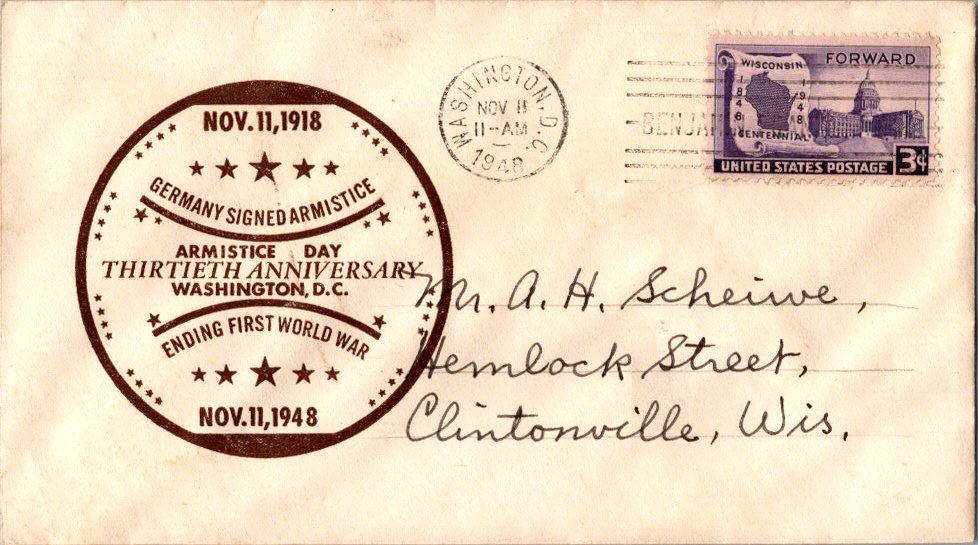 NOV. 11, 1918
GERMANY SIGNED ARMISTICE
ARMISTICE DAY
THIRTIETH ANNIVERSARY
WASHINGTON, D.C.
ENDING FIRST WORLD WAR
NOV. 11, 1948
WASHINGTON, D.C.
NOV 11
11-AM
1948
FORWARD
WISCONSIN
1848
1948
CENTENNIAL
UNITED STATES POSTAGE 3¢
Mr. A. H. Scheiwe,
Hemlock Street,
Clintonville, Wis.